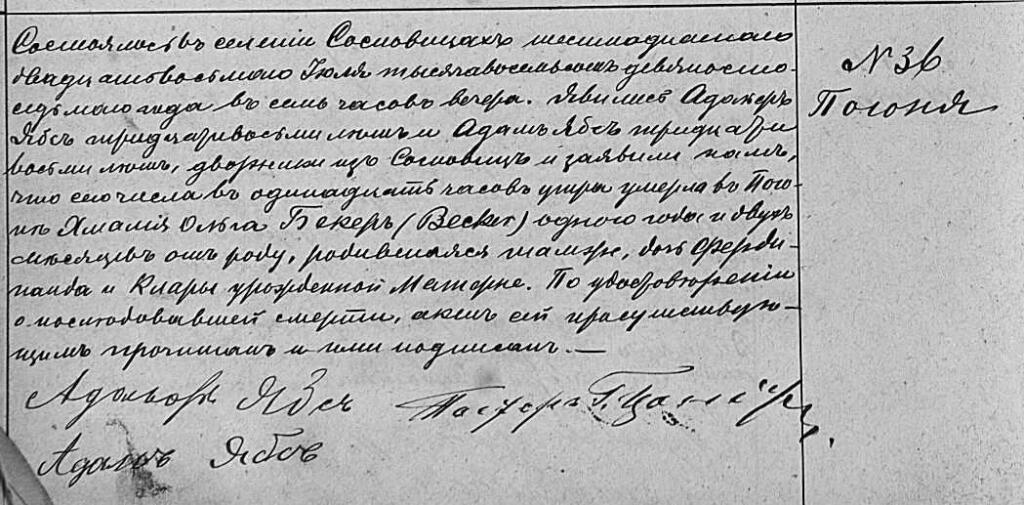 Состоялось въ селеніи Сосновицахъ шестнадцатаго
двадцатьвосьмого Іюля тысячавосемьсотъ девяносто
седьмого года въ семь часовъ вечера. Явились Адольфъ
Ябсъ тридцативосьми лѣтъ и Адамъ Ябсъ тридцати
восьми лѣтъ, дворники изъ Сосновицъ и заявили намъ,
что сего числа въ одинадцать часовъ утра умерла въ Пого-
нѣ Амалія Ольга Бекеръ (Becker) одного года и двухъ
мѣсяцевъ отъ роду, родившаяся тамже, дочь Ферди-
нанда и Клары урожденной Матерне. По удостовѣреніи
о послѣдовавшей смерти, актъ сей присутствую-
щимъ прочитанъ и ими подписанъ. —
Адольфъ Ябсъ Пасторъ Г.
Адамъ Ябсъ
N 36
Погоня